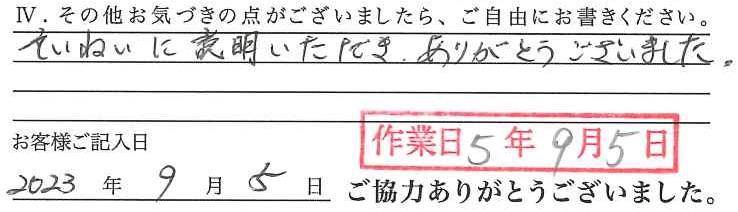 Ⅳ．その他お気づきの点がございましたら、ご自由にお書きください。
ていねいに説明いただき、ありがとうございました。
お客様ご記入日
作業日5年9月5日
2023年9月5日
ご協力ありがとうございました。